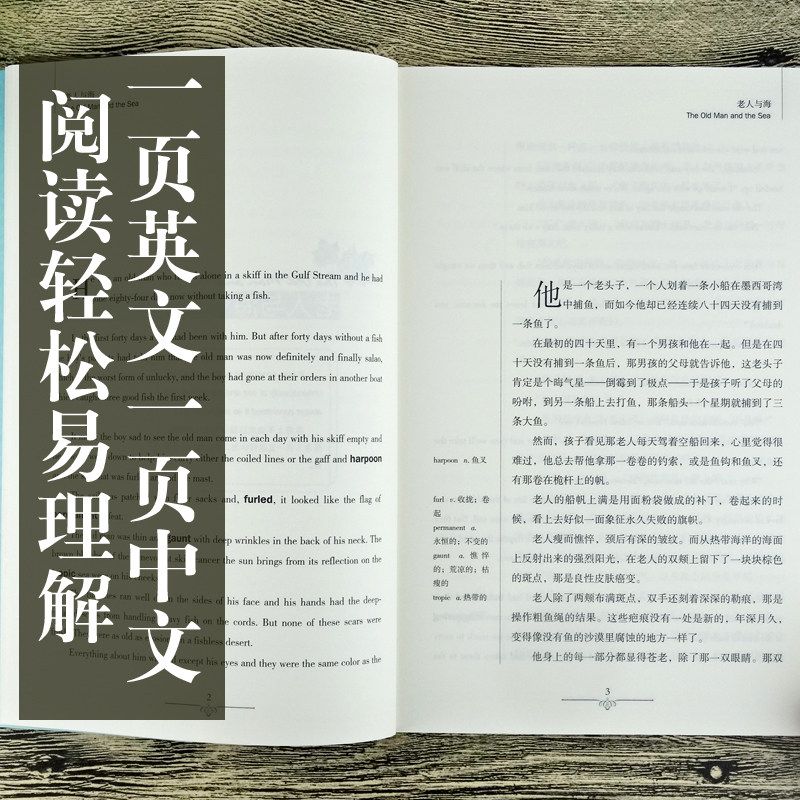 一页英文一页中文
阅读轻松易理解
老人与海
The Old Man and the Sea
an old man who alone in a skiff in the Gulf Stream and he had
eighty-four now without taking a fish.
first forty days had been with him. But after forty days without a fish
had old man was now definitely and finally salao,
worst form of unlucky, and the boy had gone at their orders in another boat
caught three good fish the first week.
the boy sad to see the old man come in each day with his skiff empty and
down to help either the coiled lines or the gaff and harpoon
that was the mast.
was patch sacks and, furled, it looked like the flag of
defeat.
man was thin and gaunt with deep wrinkles in the back of his neck. The
skin cancer the sun brings from its reflection on the
tropic sea cheeks.
ran well sides of his face and his hands had the deep-
from handling heavy fish on the cords. But none of these scars were
were as old as erosions in a fishless desert.
Everything about him was except his eyes and they were the same color as the
2
老人与海
The Old Man and the Sea
他是一个老头子，一个人划着一条小船在墨西哥湾
中捕鱼，而如今他却已经连续八十四天没有捕到
一条鱼了。
在最初的四十天里，有一个男孩和他在一起。但是在四
十天没有捕到一条鱼后，那男孩的父母就告诉他，这老头子
肯定是个晦气星——倒霉到了极点——于是孩子听了父母的
吩咐，到另一条船上去打鱼，那条船头一个星期就捕到了三
条大鱼。
然而，孩子看见那老人每天驾着空船回来，心里觉得很
难过，他总去帮他拿那一卷卷的钓索，或是鱼钩和鱼叉，还
有那卷在桅杆上的帆。
老人的船帆上满是用面粉袋做成的补丁，卷起来的时
候，看上去好似一面象征永久失败的旗帜。
老人瘦而憔悴，颈后有深的皱纹。而从热带海洋的海面
上反射出来的强烈阳光，在老人的双颊上留下了一块块棕色
的斑点，那是良性皮肤癌变。
老人除了两颊布满斑点，双手还刻着深深的勒痕，那是
操作粗鱼绳的结果。这些疤痕没有一处是新的，年深月久，
变得像没有鱼的沙漠里腐蚀的地方一样了。
他身上的每一部分都显得苍老，除了那一双眼睛。那双
harpoon n. 鱼叉
furl v. 收拢；卷
起
permanent a.
永恒的；不变的
gaunt a. 憔悴
的；荒凉的；枯
瘦的
tropic a. 热带的
3